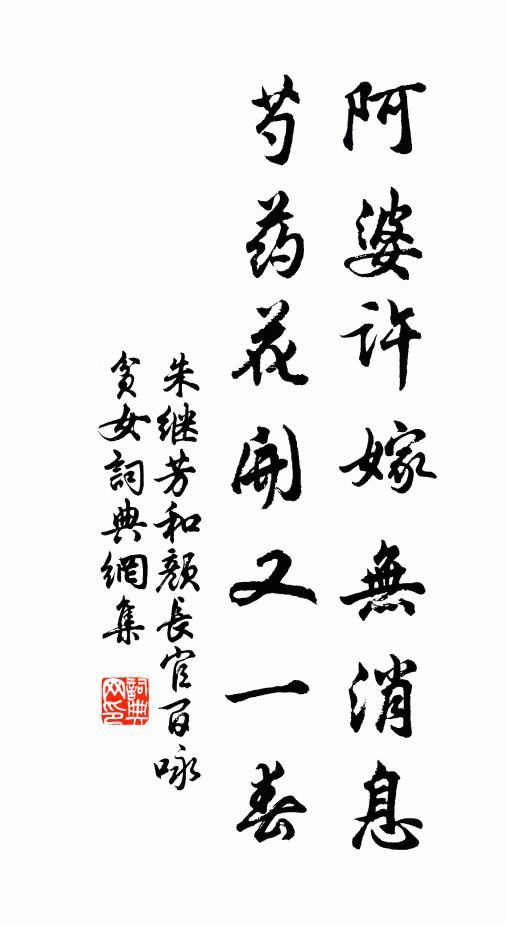 阿婆許嫁無消息
芍药花開又一春
朱继芳和顏長官百咏
貧女詞典網集
詞典网印